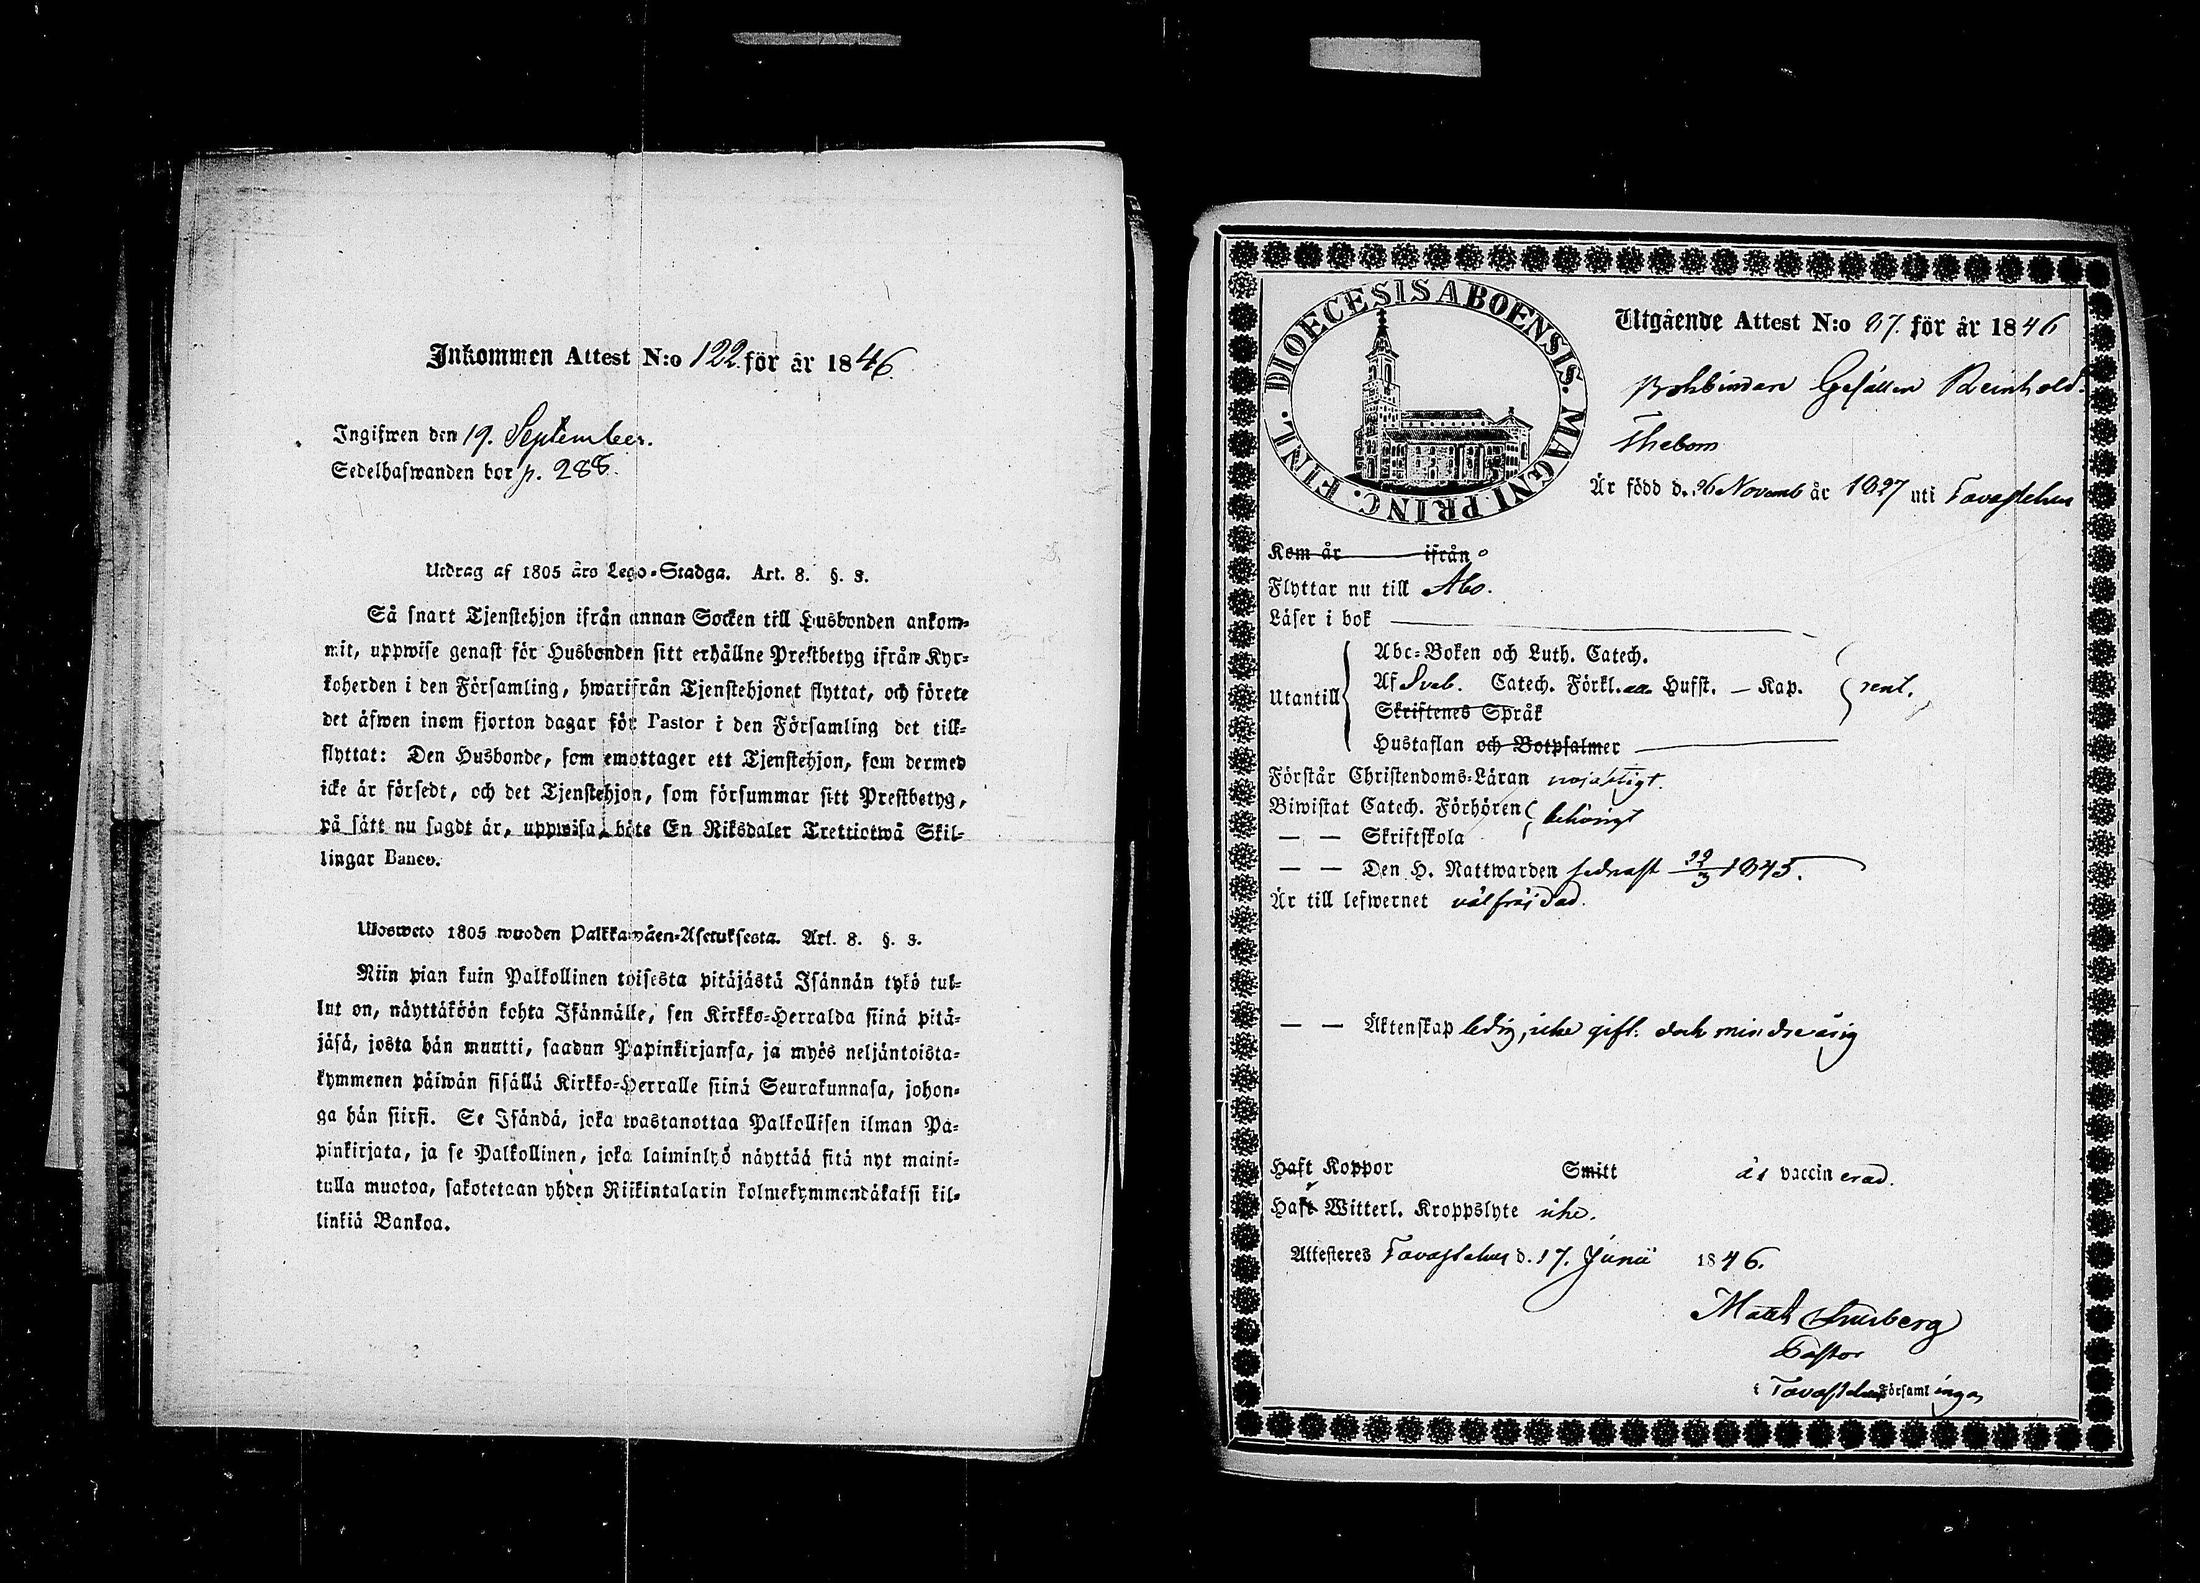 Inkommen Attest N:o 122. för år 1846.
Ingifwen den 19. September.
Sedelhafwanden bor p. 288.
Utdrag af 1805 års Lego-Stadga. Art. 8. §. 3.
Så snart Tjenstehjon ifrån annan Socken till Husbonden ankom-
mit, uppwise genast för Husbonden sitt erhållne Prestbetyg ifrån Kyr-
koherden i den Församling, hwarifrån Tjenstehjonet flyttat, och förete
det äfwen inom fjorton dagar för Pastor i den Församling det till-
flyttat: Den Husbonde, som emottager ett Tjenstehjon, som dermed
icke är försedt, och det Tjenstehjon, som försummar sitt Prestbetyg,
på sätt nu sagdt är, uppwisa, böte En Riksdaler Trettiotwå Skil-
lingar Banco.
Ulosweto 1805 wuoden Palkkawäen-Asetuksesta. Art. 8. §. 3.
Niin pian kuin Palkollinen toisesta pitäjästä Isännän tykö tul-
lut on, näyttäköön kohta Isännälle, sen Kirkko-Herralda siinä pitä-
jäsä, josta hän muutti, saadun Papinkirjansa, ja myös neljäntoista-
kymmenen päiwän sisällä Kirkko-Herralle siinä Seurakunnasa, johon-
ga hän siirsi. Se Isändä, joka wastanottaa Palkollisen ilman Pa-
pinkirjata, ja se Palkollinen, joka laiminlyö näyttää sitä nyt maini-
tulla muotoa, sakotetaan yhden Riikintalarin kolmekymmendäkaksi kil-
linkiä Bankoa.
DIOECESIS ABOENSIS. MAGNI PRINC. FINL.
Utgående Attest N:o 87. för år 1846
Bokbindare Gesällen Reinhold
Thebom
Är född d. 26 Novemb år 1827 uti Tavastehus
Kom år ifrån
Flyttar nu till Åbo.
Läser i bok
Abc-Boken och Luth. Catech.
Utantill Af Sveb. Catech. Förkl. Husst. — Kap. rent.
Skriftenes Språk
Hustaflan och Botpsalmer
Förstår Christendoms-Läran nöjaktigt.
Biwistat Catech. Förhören behörigt
— — Skriftskola
— — Den H. Nattwarden sednast 22/3 1845.
Är till lefwernet välfräjdad.
— — Äktenskap ledig, icke gift. dock minderårig
Haft Koppor Smitt är vaccinerad.
Haft Witterl. Kroppslyte icke.
Attesteres Tavastehus d. 17. Junii 1846.
Pastor
i Tavastehus Församlingen